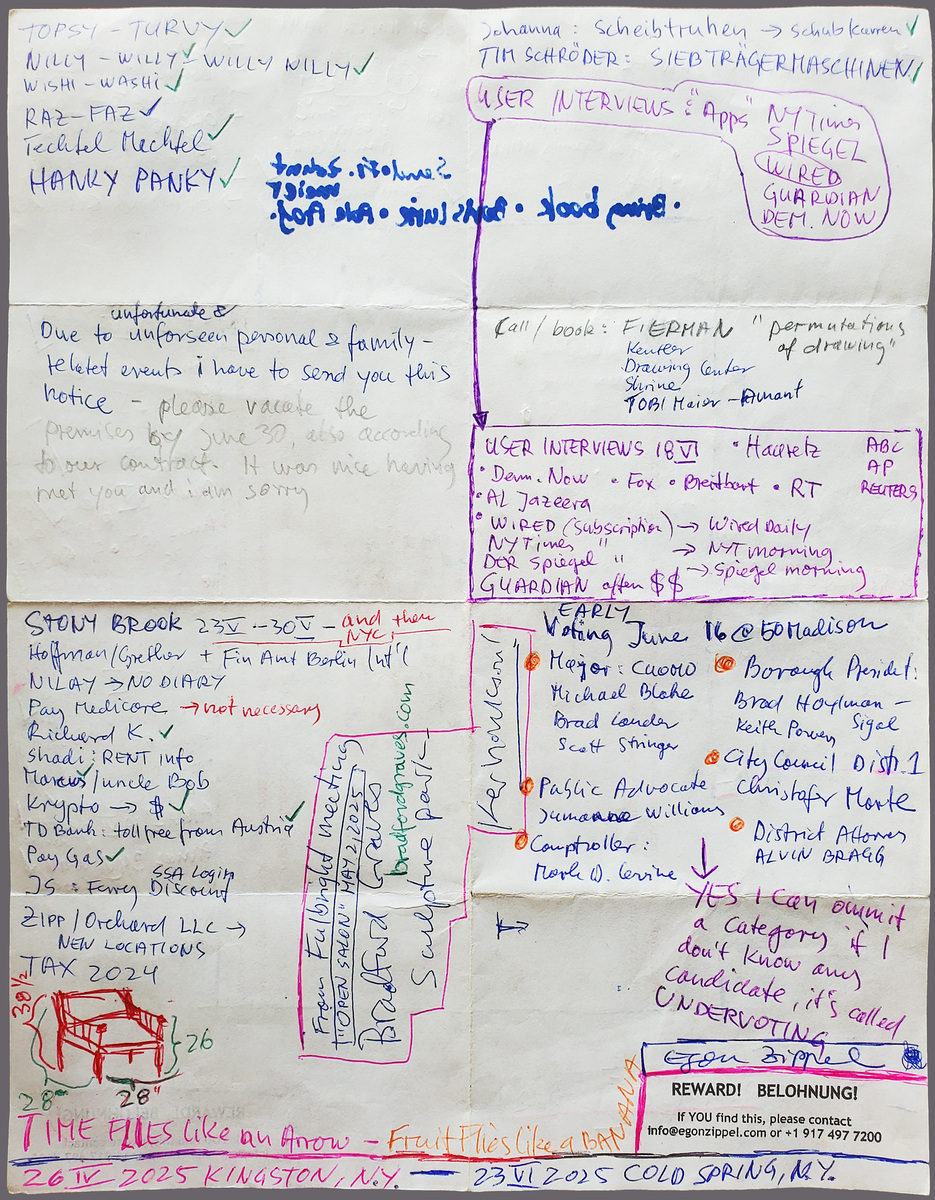 TOPSY - TURVY ✓
NILLY - WILLY ✓ - WILLY NILLY ✓
WISHI - WASHI ✓
RAZ - FAZ ✓
Techtel Mechtel ✓
HANKY PANKY ✓
Johanna: Scheibtruhen → Schubkarren ✓
TIM SCHRÖDER: SIEBTRÄGERMASCHINEN ✓
USER INTERVIEWS & "Apps"
NYTimes
SPIEGEL
WIRED
GUARDIAN
DEM. NOW
meier
• Bring book •
unfortunate &
Due to unforseen personal & family-
related events i have to send you this
notice - please vacate the
premises by June 30, also according
to our contract. It was nice having
met you and i am sorry
Call / book: FIERMAN "permutations
of drawing"
Kentler
Drawing Center
Shrine
TOBI Maier - Amant
USER INTERVIEWS 18 VI • Haaretz
• Dem. Now • Fox • Breitbart • RT
• AL Jazeera
• WIRED (subscription) → Wired Daily
NYTimes " → NYT morning
DER Spiegel " → Spiegel morning
GUARDIAN often $$
ABC
AP
REUTERS
STONY BROOK 23 V - 30 V - and then
NYC!
Hoffman/Grether + Fin Amt Berlin Int'l
NILAY → NO DIARY
Pay Medicare → not necessary
Richard K. ✓
Shadi: RENT info
Marcus/uncle Bob
Krypto → $ ✓
TD Bank: toll free from Austria ✓
Pay Gas ✓
SSA Login
JS: Ferry Discount
ZIPP / Orchard LLC →
NEW LOCATIONS
TAX 2024
30 1/2
26
28"
28"
From Fulbright meeting
"OPEN SALON" MAY 2, 2025
Bradford Graves
bradfordgraves.com
Sculpture park -
Kerhonkson!
EARLY
Voting June 16 @ 50 Madison
Major: CUOMO
Michael Blake
Brad Lander
Scott Stringer
Public Advocate
Jumaane Williams
Comptroller:
Mark D. Levine
Borough President:
Brad Hoylman -
Sigal
Keith Powers
City Council Distr. 1
Christofer Marte
District Attorney
ALVIN BRAGG
YES I Can ommit
a category if I
don't know any
candidate, it's called
UNDERVOTING
Egon Zippel
REWARD! BELOHNUNG!
If YOU find this, please contact
info@egonzippel.com or +1 917 497 7200
TIME FLIES like an Arrow - Fruit Flies like a BANANA
26 IV 2025 KINGSTON, N.Y. — 23 VI 2025 COLD SPRING, N.Y.